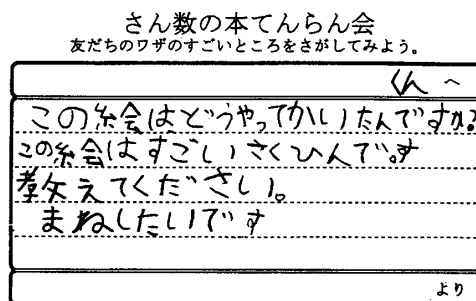 さん数の本てんらん会
友だちのワザのすごいところをさがしてみよう。
くんへ
この絵はどうやってかいたんですか?
この絵はすごいさくひんです。
教えてください。
まねしたいです
より